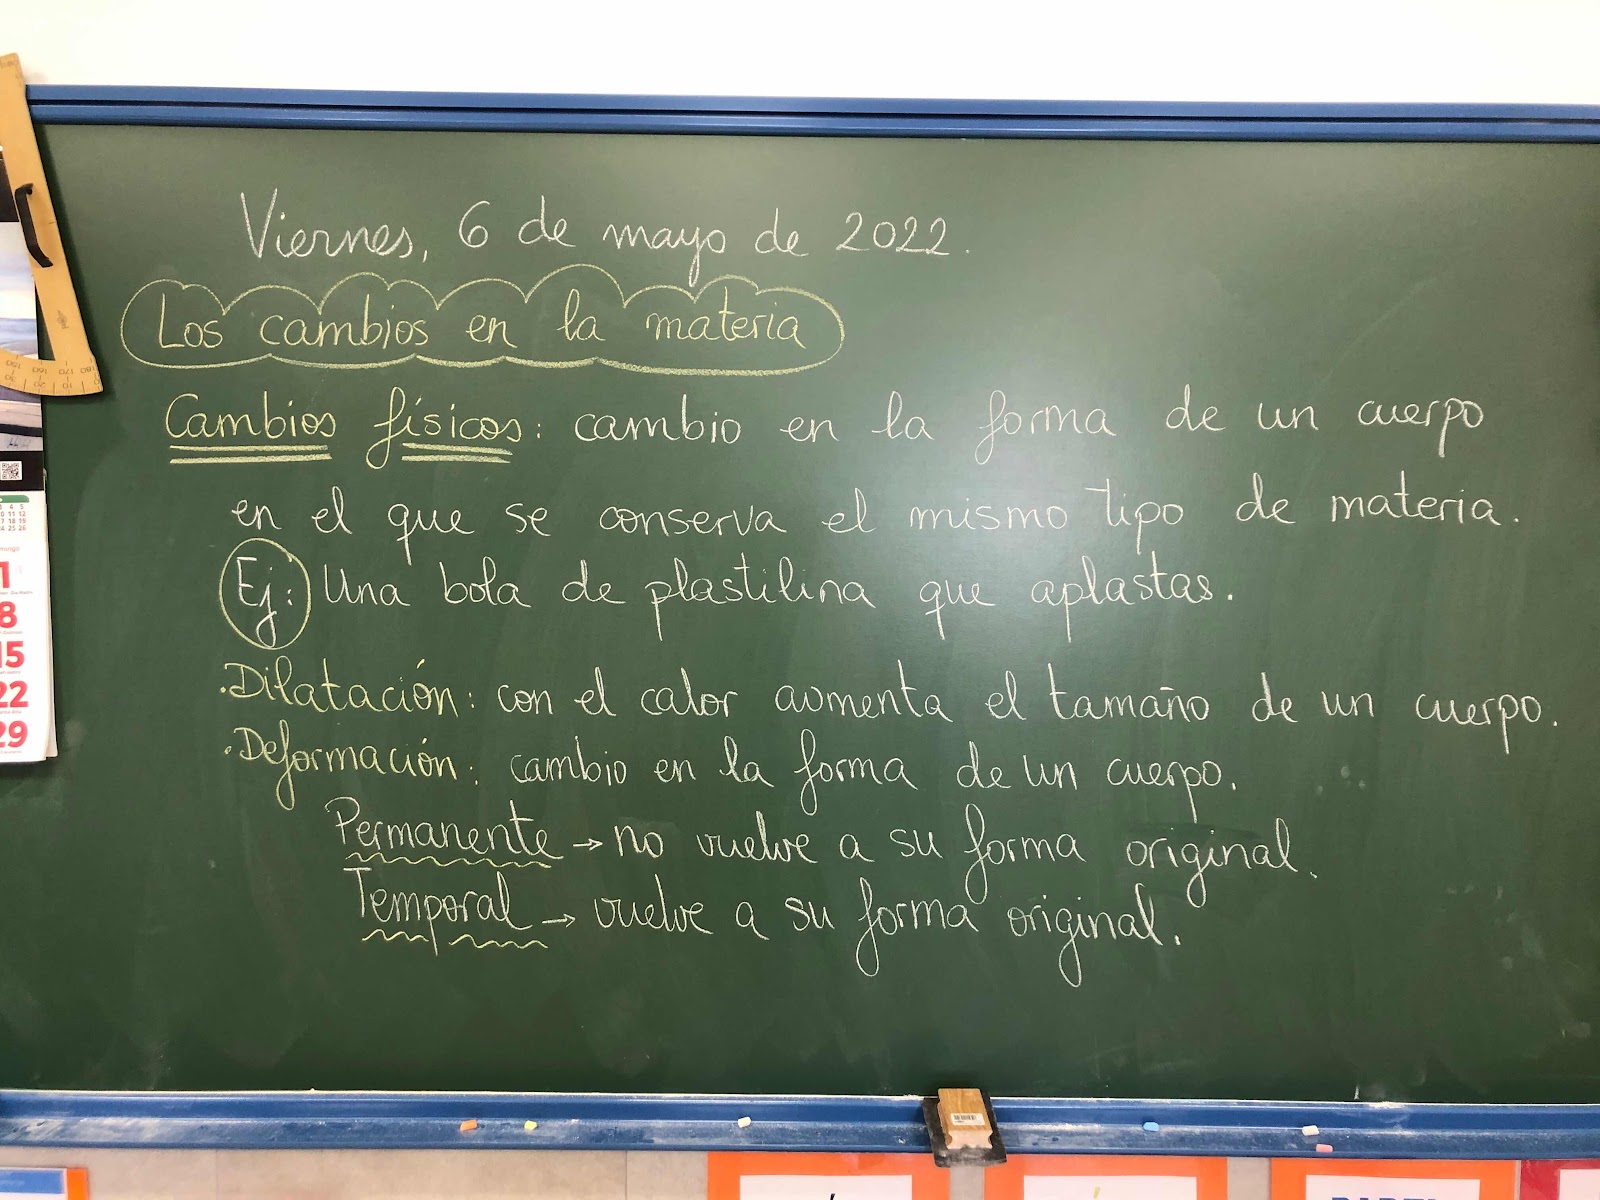 Viernes, 6 de mayo de 2022.
Los cambios en la materia
Cambios físicos: cambio en la forma de un cuerpo
en el que se conserva el mismo tipo de materia.
Ej: Una bola de plastilina que aplastas.
·Dilatación: con el calor aumenta el tamaño de un cuerpo.
·Deformación: cambio en la forma de un cuerpo.
Permanente → no vuelve a su forma original.
Temporal → vuelve a su forma original.
1
8
15
22
29